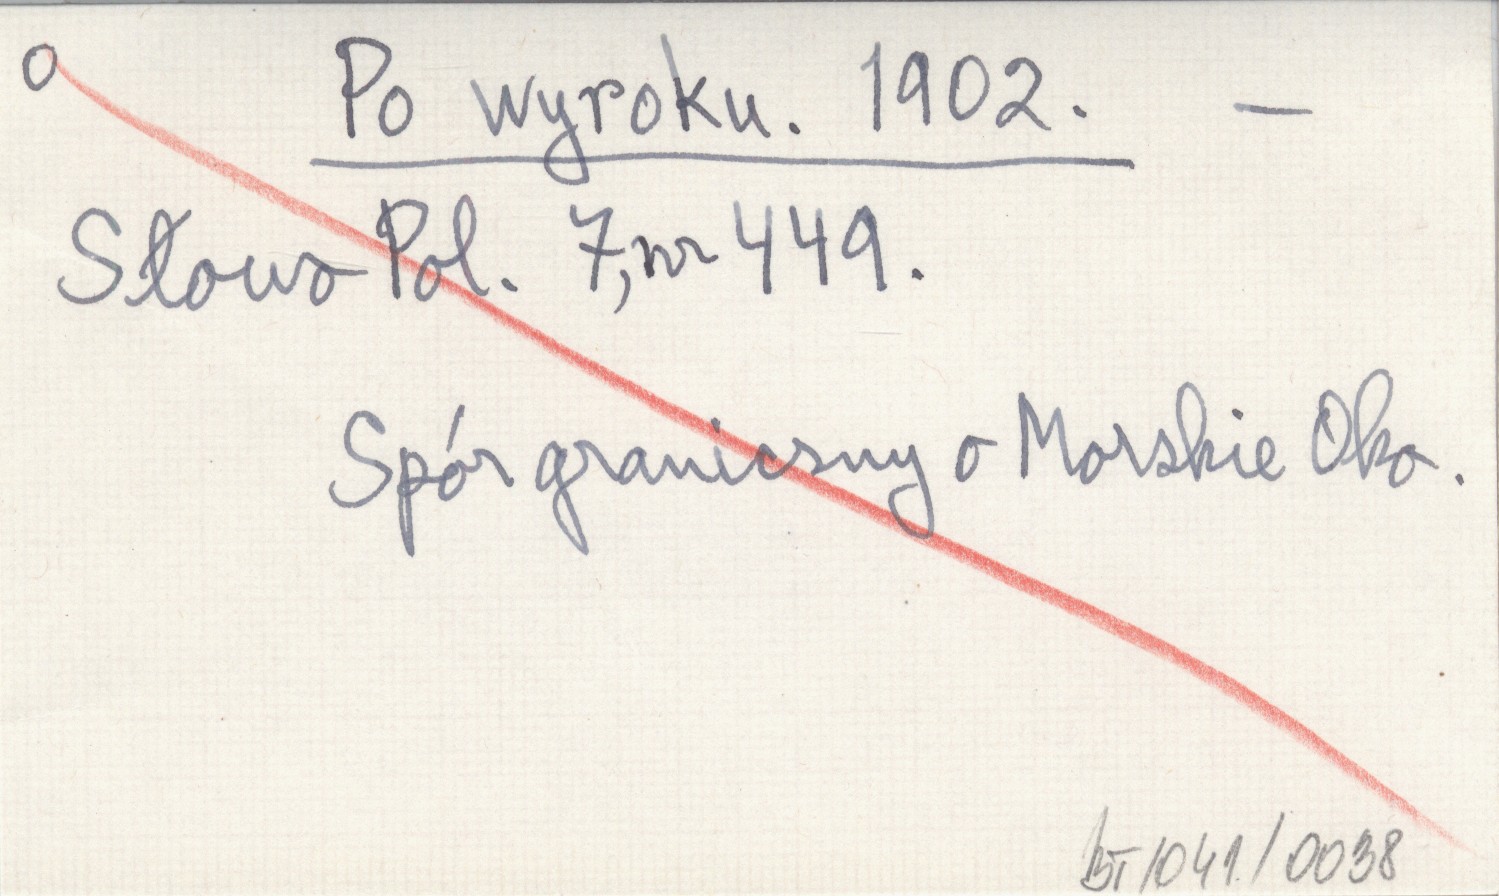 O Po wyroku. 1902. —
Słowo Pol. 7, nr 449.
Spór graniczny o Morskie Oko.
BT/041/0038